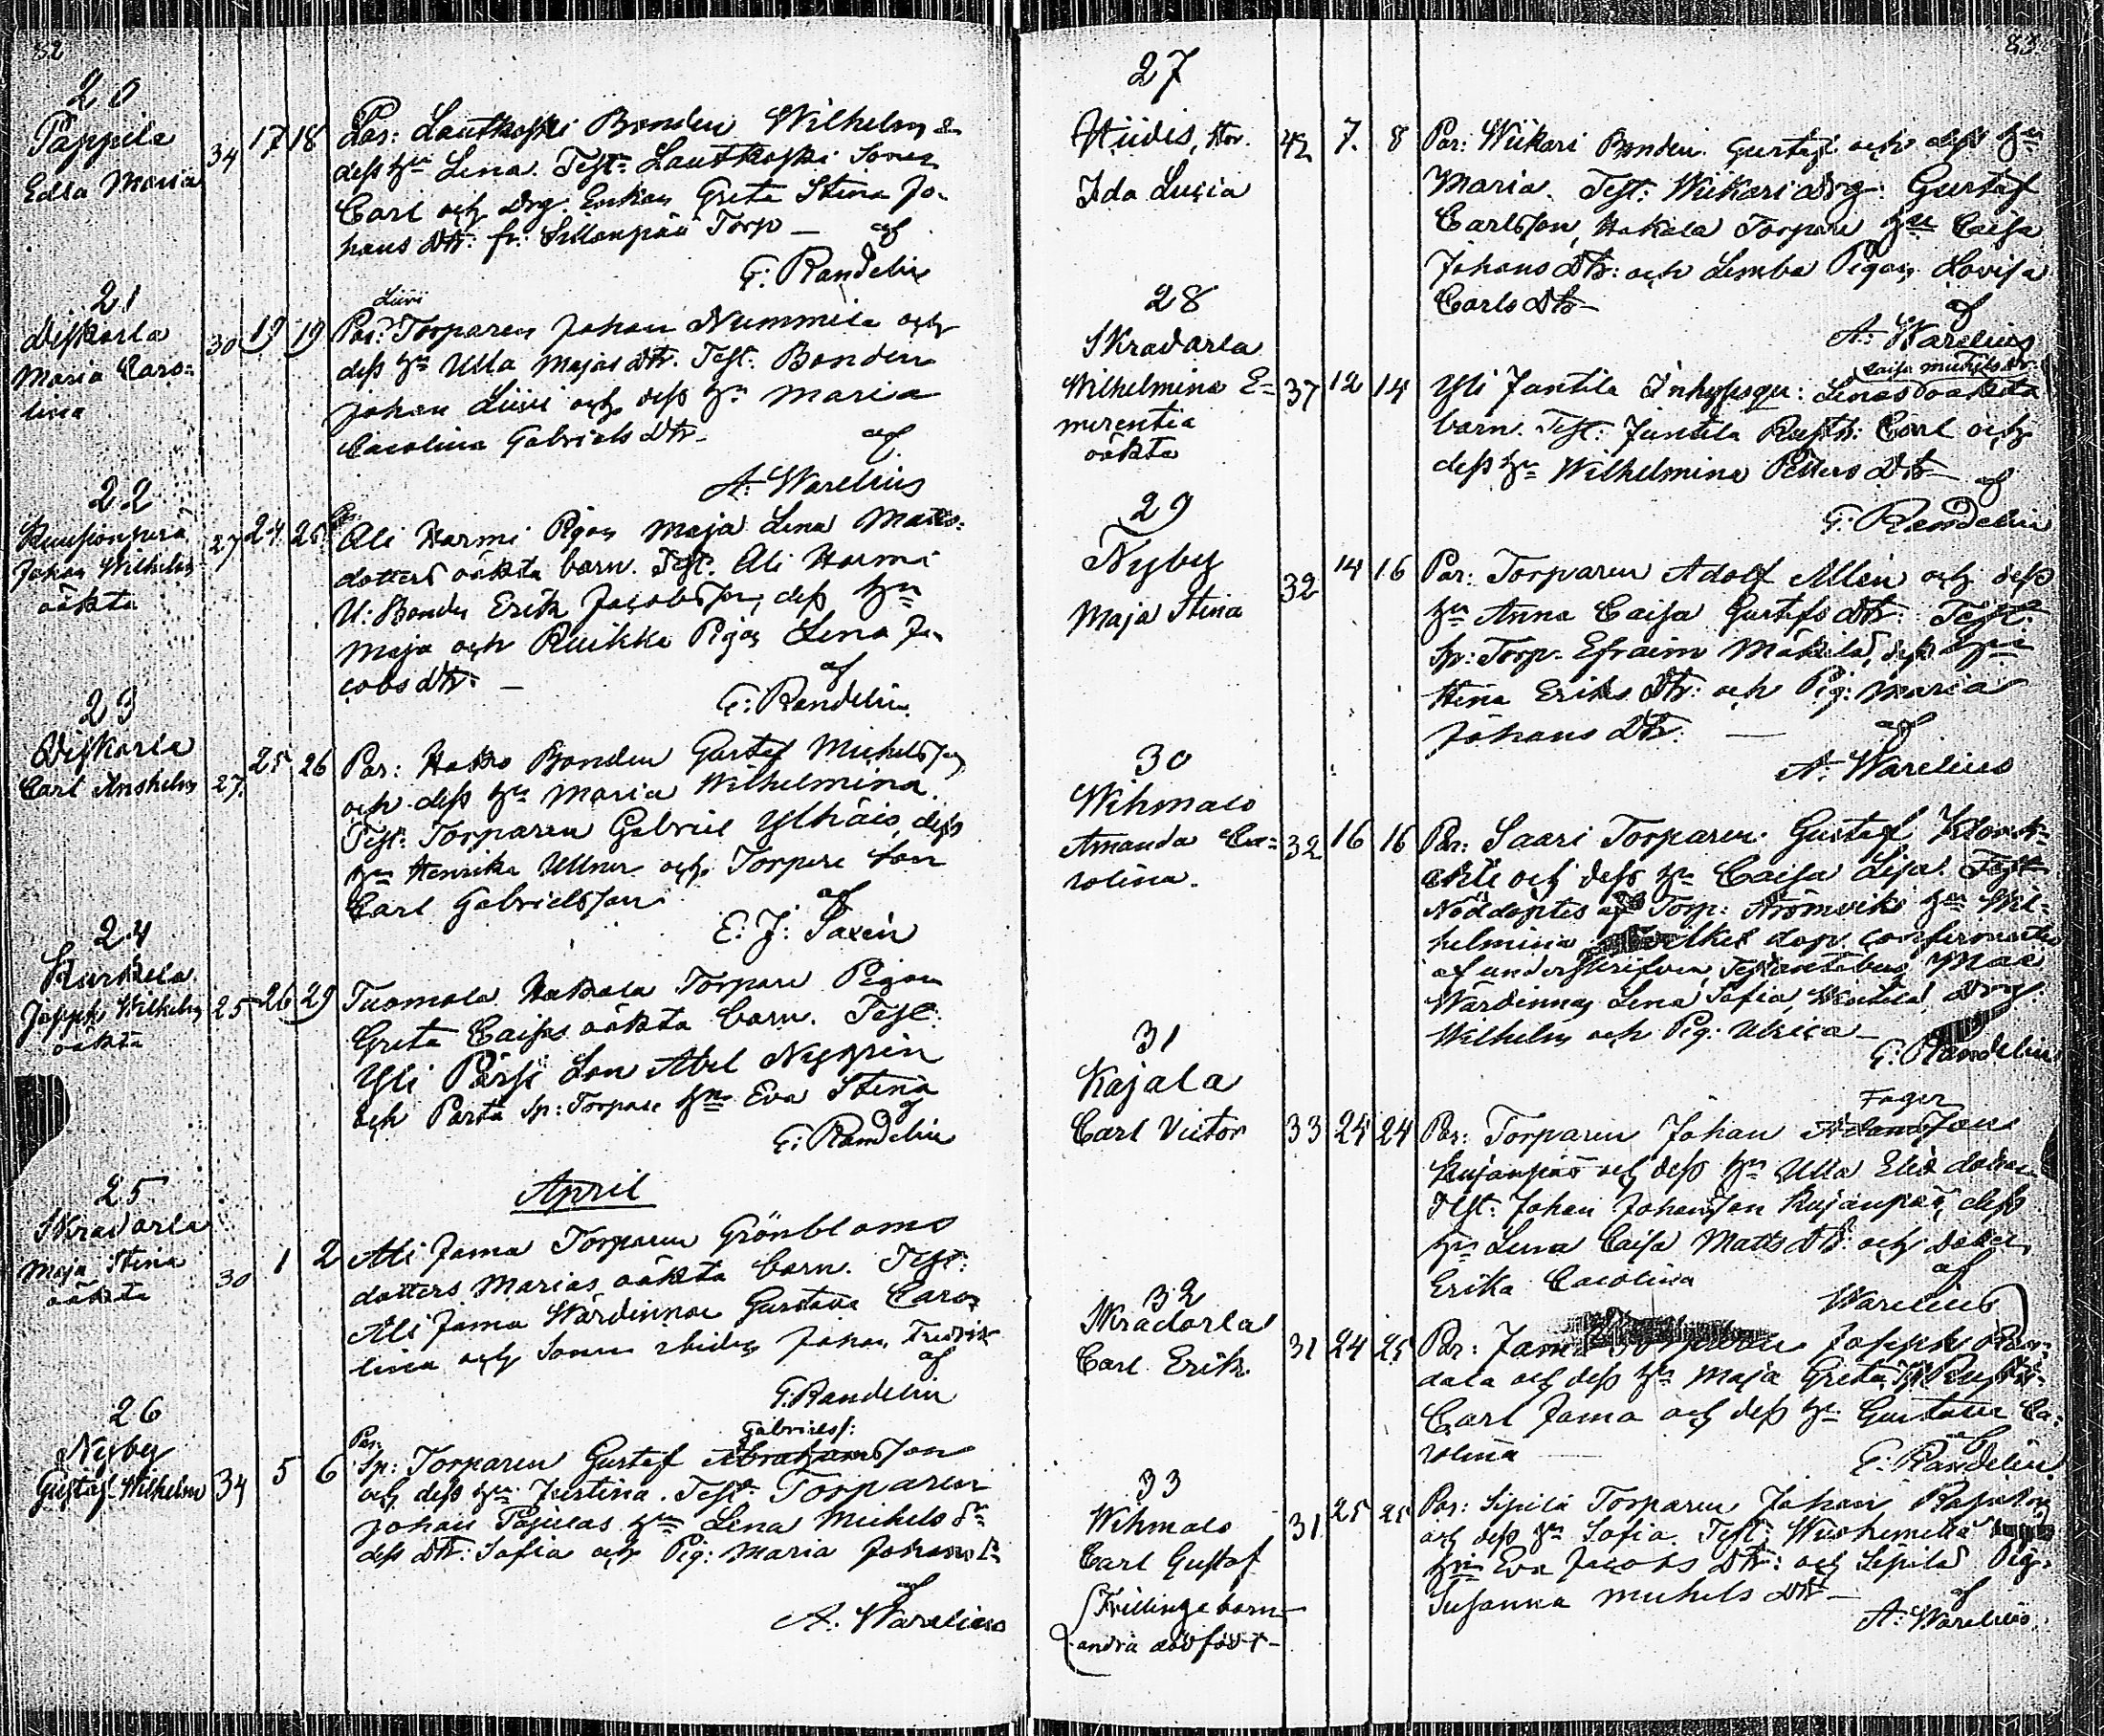 82
20
Pappila
Edla Maria
34 17 18
Par: Lautkoski Bonden Wilhelm &
dess hu Lina. Test: Lautkoski Sonen
Carl och Drg. Enkan Greta Stina Jo-
hans Dtr: fr: Sillanpää Torp — af
G: Randelin
21
Diskarla
Maria Caro-
lina
30 19 19
Liuvi
Par: Torparen Johan Nummila och
dess hu Ulla Majas Dtr. Test: Bonden
Johan Liuvi och dess hu Maria
Carolina Gabriels Dtr— af
A: Warelius
22
Johan Wilhelm
oäkta
27 24 25
Par:
Ali Harmi Pigan Maja Lena Matts-
dotters oäkta barn. Test. Ali Harmi
U: Bonden Erik Jacobsson, dess hu
Maja och Ruikka Pigan Lena Ja-
cobs dtr. — af
G: Randelin
23
Diskarla
Carl Anshelm
27. 25 26
Par: Hakro Bonden Gustaf Michelsson
och dess hu Maria Wilhelmina.
Test: Torparen Gabriel Ylhäis, dess
hu Henrika Ullner och Torpare Son
Carl Gabrielsson. af
E. J: Saxén
24
Kurkela
Joseph Wilhelm
oäkta
25 26 29
Tuomola Hakala Torpare Pigan
Greta Caisas oäkta barn. Test:
Yli Pärsi Son Abel Nygrén
och Parta Sp: Torpare hu Eva Stina
af
G: Randelin
April
25
Skradarla
Maja Stina
oäkta
30 1 2
Ali Jama Torparen Grönbloms
dotters Marias oäkta barn. Test:
Ali Jama Wärdinnan Gustava Caro-
lina och Sonen Johan Fredrik
af
G. Randelin
26
Nyby
Gustaf Wilhelm
34 5 6
Par.
Gabrielss:
Sp: Torparen Gustaf Abrahamsson
och dess hu Justina. Test: Torparen
Johan Pajulas hu Lena Michels Dr
dess Dtr: Sofia och Pig: Maria Johans Dr
af
A: Warelius
83
27
Hiidis, Stor.
Ida Lusia
42 7. 8
Par: Wiikari Bonden Gustaf och dess hu
Maria. Test: Wiikari Drg: Gustaf
Carlsson, Hakala Torpare hu Caisa
Johans Dtr: och Lemba Pigan Lovisa
Carls Dtr— af
A: Warelius
28
Skradarla
Wilhelmina E-
merentia
oäkta
37 12 14
Caisa Michelsdtr:
Yli Jantila Inhysesqv: Lenas oäkta
barn. Test: Juntila Rusth: Carl och
dess hu Wilhelmina Petters Dtr—
af
G: Randelin
29
Nyby
Maja Stina
32 14 16
Par: Torparen Adolf Allén och dess
hu Anna Caisa Gustafs Dtr: Test:
Sp: Torp. Efraim Mäkilä, dess hu
Stina Eriks Dtr: och Pig: Maria
Johans Dtr. — af
A: Warelius
30
Wihmalo
Amanda Ca-
rolina.
32 16 16
Par: Saari Torparen Gustaf
och dess hu Caisa Lisa. Test
Nöddöptes af Torp: Strömviks hu Wil-
helmina hvilket dop confirmerades
af underskrifven, Testantibus
Wärdinnan Lena Sofia, Wentilä Drg:
Wilhelm och Pig: Ulrica—
G: Randelin
31
Kajala
Carl Victor
33 24 24
Fager
Par: Torparen Johan Adamsson
Kujanpää och dess hu Ulla Elis dotter
Test: Johan Johansson Kujanpää, dess
hu Lena Caisa Matts Dtr: och dotter
Erika Carolina af
Warelius
32
Skradarla
Carl Erik.
31 24 25
Par: Jama Joseph Ran-
dala och dess hu Maja Greta. T:
Carl Jama och dess hu Gustava Ca-
rolina — af
G: Randelin
33
Wihmalo
Carl Gustaf
Tvillingebarn—
andra dödfödt—
31 25 25
Par: Sipilä Torparen Johan
och dess hu Sofia. Test:
hu Eva Jacobs Dtr: och Sipilä Pig:
Susanna Michels Dtr—
af
A: Warelius.